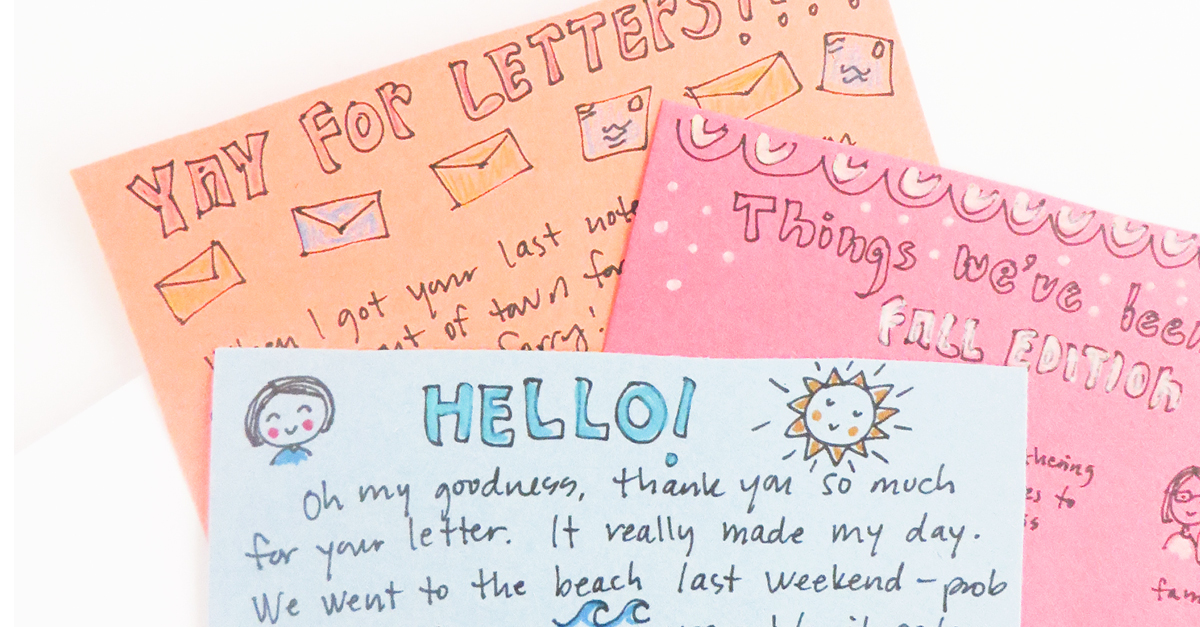 YAY FOR LETTERS!!!!
I got your last note
of town for
Sorry!
Things we've been
FALL EDITION
HELLO!
Oh my goodness, thank you so much
for your letter. It really made my day.
We went to the beach last weekend - prob